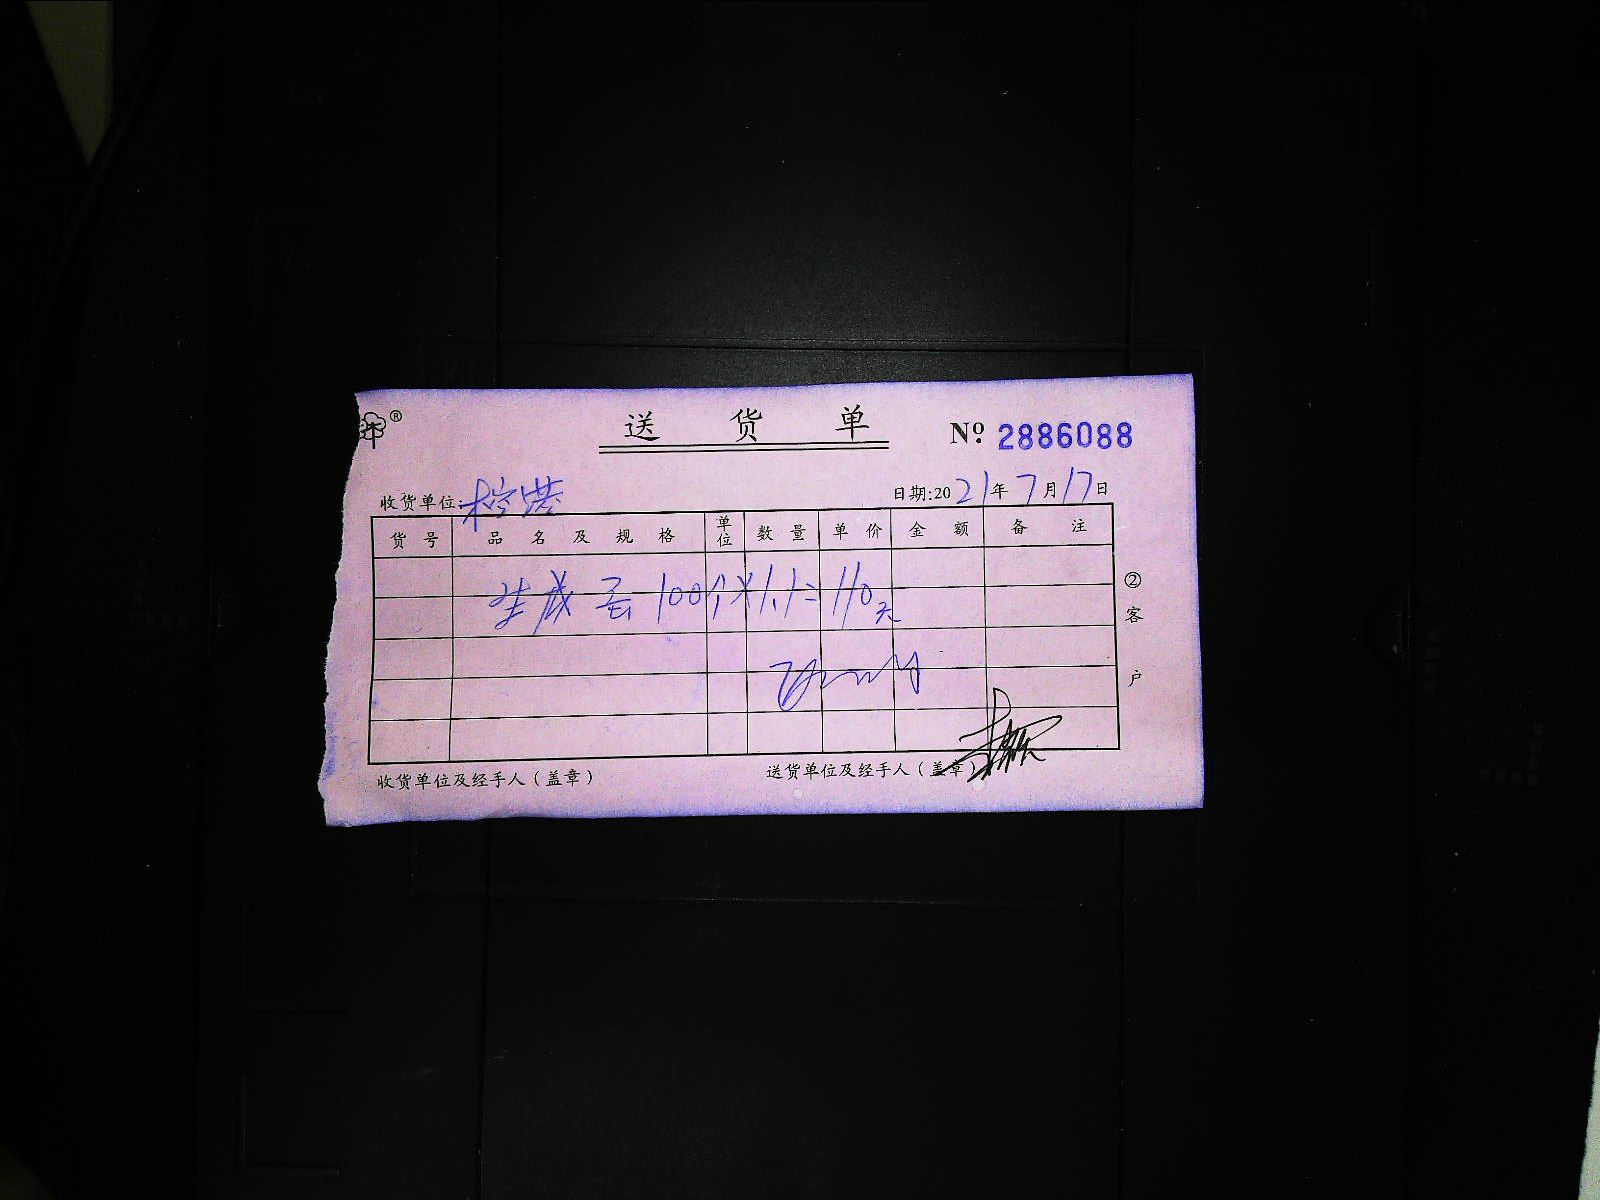 送货单 № 2886088
收货单位:
日期:2021年7月17日
货号 品名及规格 单位 数量 单价 金额 备注
生咸蛋 100个×1.1=110元
②客户
收货单位及经手人(盖章)
送货单位及经手人(盖章)